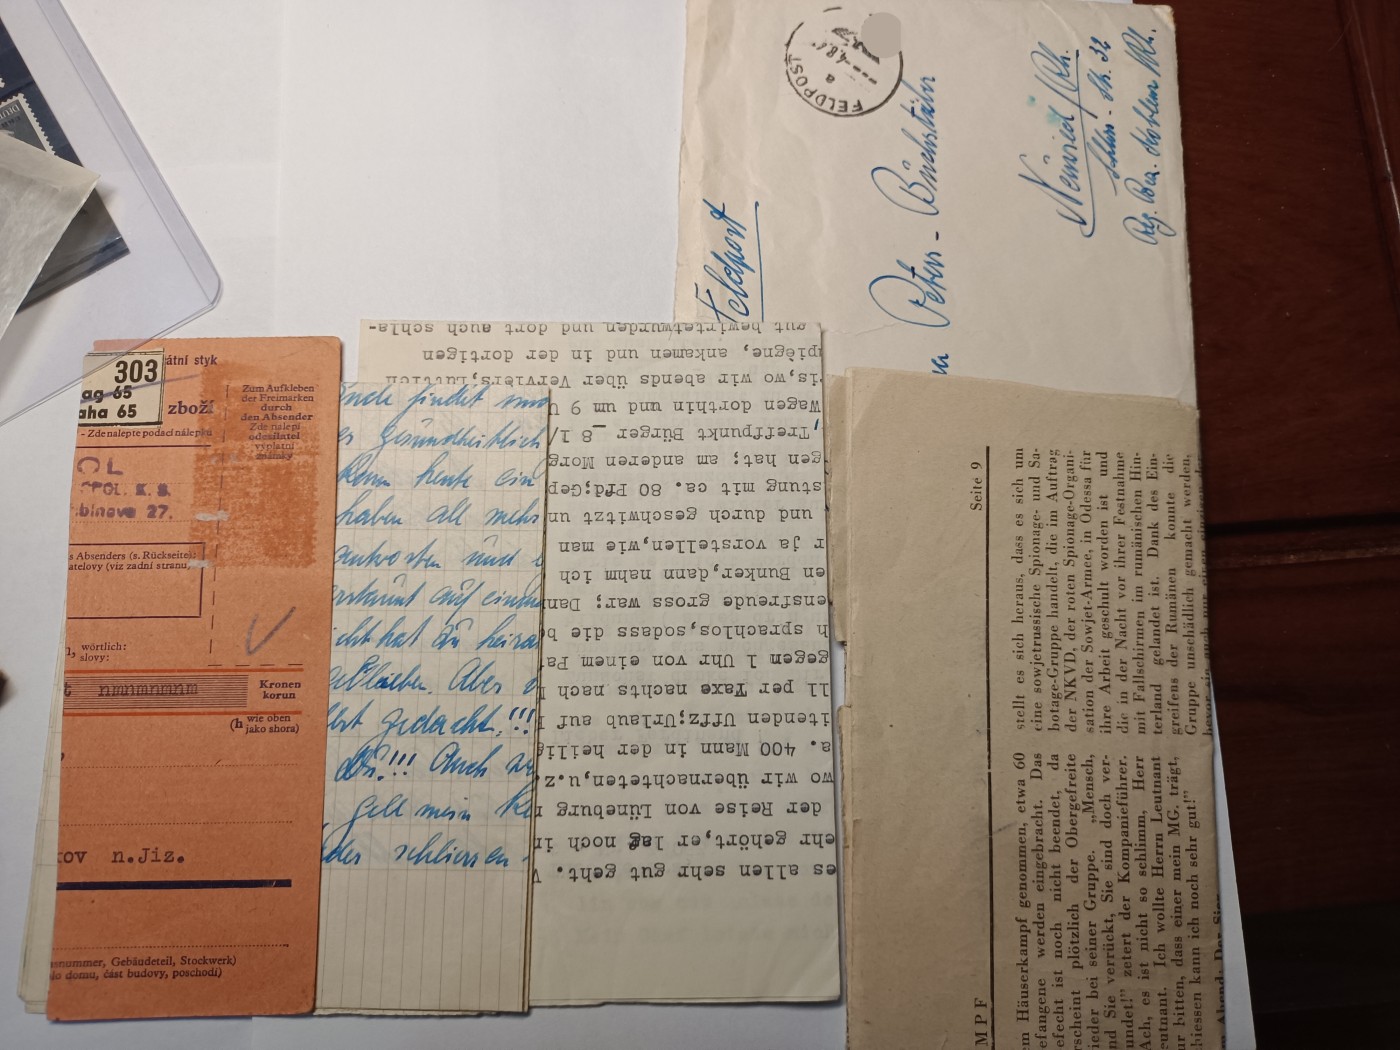 303
ag 65
aha 65
átní styk
zboží
- Zde nalepte podací nálepku
Zum Aufkleben
der Freimarken
durch
den Absender
Zde nalepí
odesílatel
výplatní
známky
OL
OPOL. K. S.
binova 27.
s Absenders (s. Rückseite):
atelovy (viz zadní stranu)
n, wörtlich:
slovy:
t nmnmnmnm
Kronen
korun
(h wie oben
jako shora)
kov n.Jiz.
snummer, Gebäudeteil, Stockwerk)
lo domu, část budovy, poschodí)
es gesundheitlich
haben all mehr
antworten und
icht hat zu heira
Aber
bst gedacht!!!
!!! Auch
gell mein
schliessen
es allen sehr gut geht.
ehr gehört, er lag noch in
der Reise von Lüneburg
wo wir übernachteten, u.z.
a. 400 Mann in der heilig
itenden Uffz; Urlaub auf
ll per Taxe nachts nach
gegen 1 Uhr von einem Pat
h sprachlos, sodass die
ensfreude gross war; Dan
en Bunker, dann nahm ich
r ja vorstellen, wie man
und durch geschwitzt un
stung mit ca. 80 Pfd; Gep
gen hat; am anderen Morg
Treffpunkt Bürger 8 1/
Wagen dorthin und um 9 U
ris, wo wir abends über Verviers, Lüttich
piègne, ankamen und in der dortigen
gut bewirtet wurden und dort auch schla-
FELDPOST
a
Feldpost
Peters - Büchstäber
Neuwied / Rh.
Str. 32
Reg. Bez. Koblenz / Rh.
MPF
Seite 9
em Häuserkampf genommen, etwa 60
efangene werden eingebracht. Das
efecht ist noch nicht beendet, da
rscheint plötzlich der Obergefreite
ieder bei seiner Gruppe. „Mensch,
nd Sie verrückt, Sie sind doch ver-
undet!" zetert der Kompanieführer.
Ach, es ist nicht so schlimm, Herr
eutnant. Ich wollte Herrn Leutnant
ur bitten, dass einer mein MG. trägt,
hiessen kann ich noch sehr gut!"
n Abend: Der Sieg
stellt es sich heraus, dass es sich um
eine sowjetrussische Spionage- und Sa-
botage-Gruppe handelt, die im Auftrag
der NKVD, der roten Spionage-Organi-
sation der Sowjet-Armee, in Odessa für
ihre Arbeit geschult worden ist und
die in der Nacht vor ihrer Festnahme
mit Fallschirmen im rumänischen Hin-
terland gelandet ist. Dank des Ein-
greifens der Rumänen konnte die
Gruppe unschädlich gemacht werden,
bevor sie auch nur einen einzigen